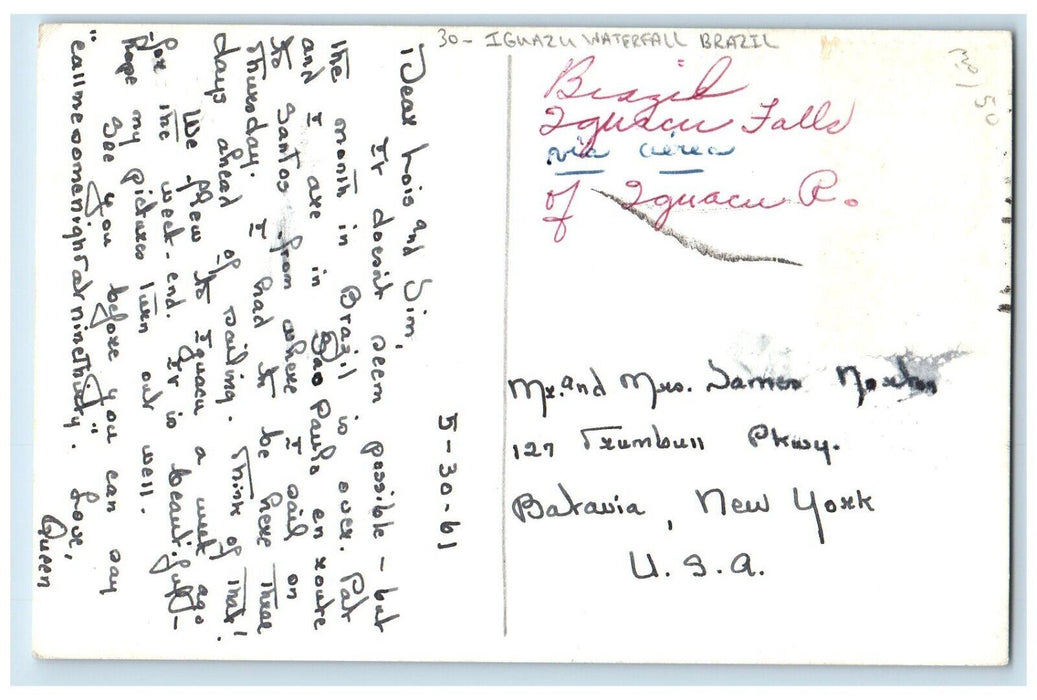 30- IGUAZU WATERFALL BRAZIL
5-30-61
Dear Lois and Jim,
It doesn't seem possible - but
the month in Brazil is over. Pat
and I are in Sao Paulo en route
to Santos from where I sail on
Thursday. I had to be here three
days ahead of sailing. Think of that!
We flew to Iguacu a week ago
for the week-end. It is beautiful -
hope my pictures turn out well.
See you before you can say
"call me some night at nine thirty". Love,
Queen
Brazil
Iguacu Falls
via aerea
of Iguacu R.
Mr. and Mrs. James Norton
127 Trumbull Pkwy.
Batavia, New York
U.S.A.